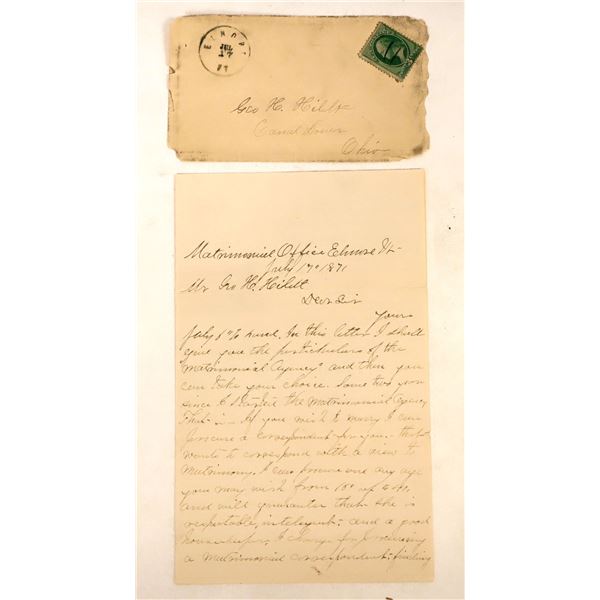 JUL
17
Geo H. Hiblt
Canal Dover
Ohio
Matrimonial Office Elmore Vt
July 17th 1871
Mr Geo H. Hiblt
Dear Sir
Yours
July 8th to hand. In this letter I shall
give you the particulars of the
"Matrimonial Agency" and then you
can take your choice. Some two years
since I started the Matrimonial Agency
That is – If you wish to marry I can
procure a correspondent for you – that
wants to correspond with a view to
Matrimony. I can procure one any age
you may wish from 18 up to 40,
and will guarantee that she is
respectable, inteligent – and a good
housekeeper. I charge for procuring
a Matrimonial correspondent – finding